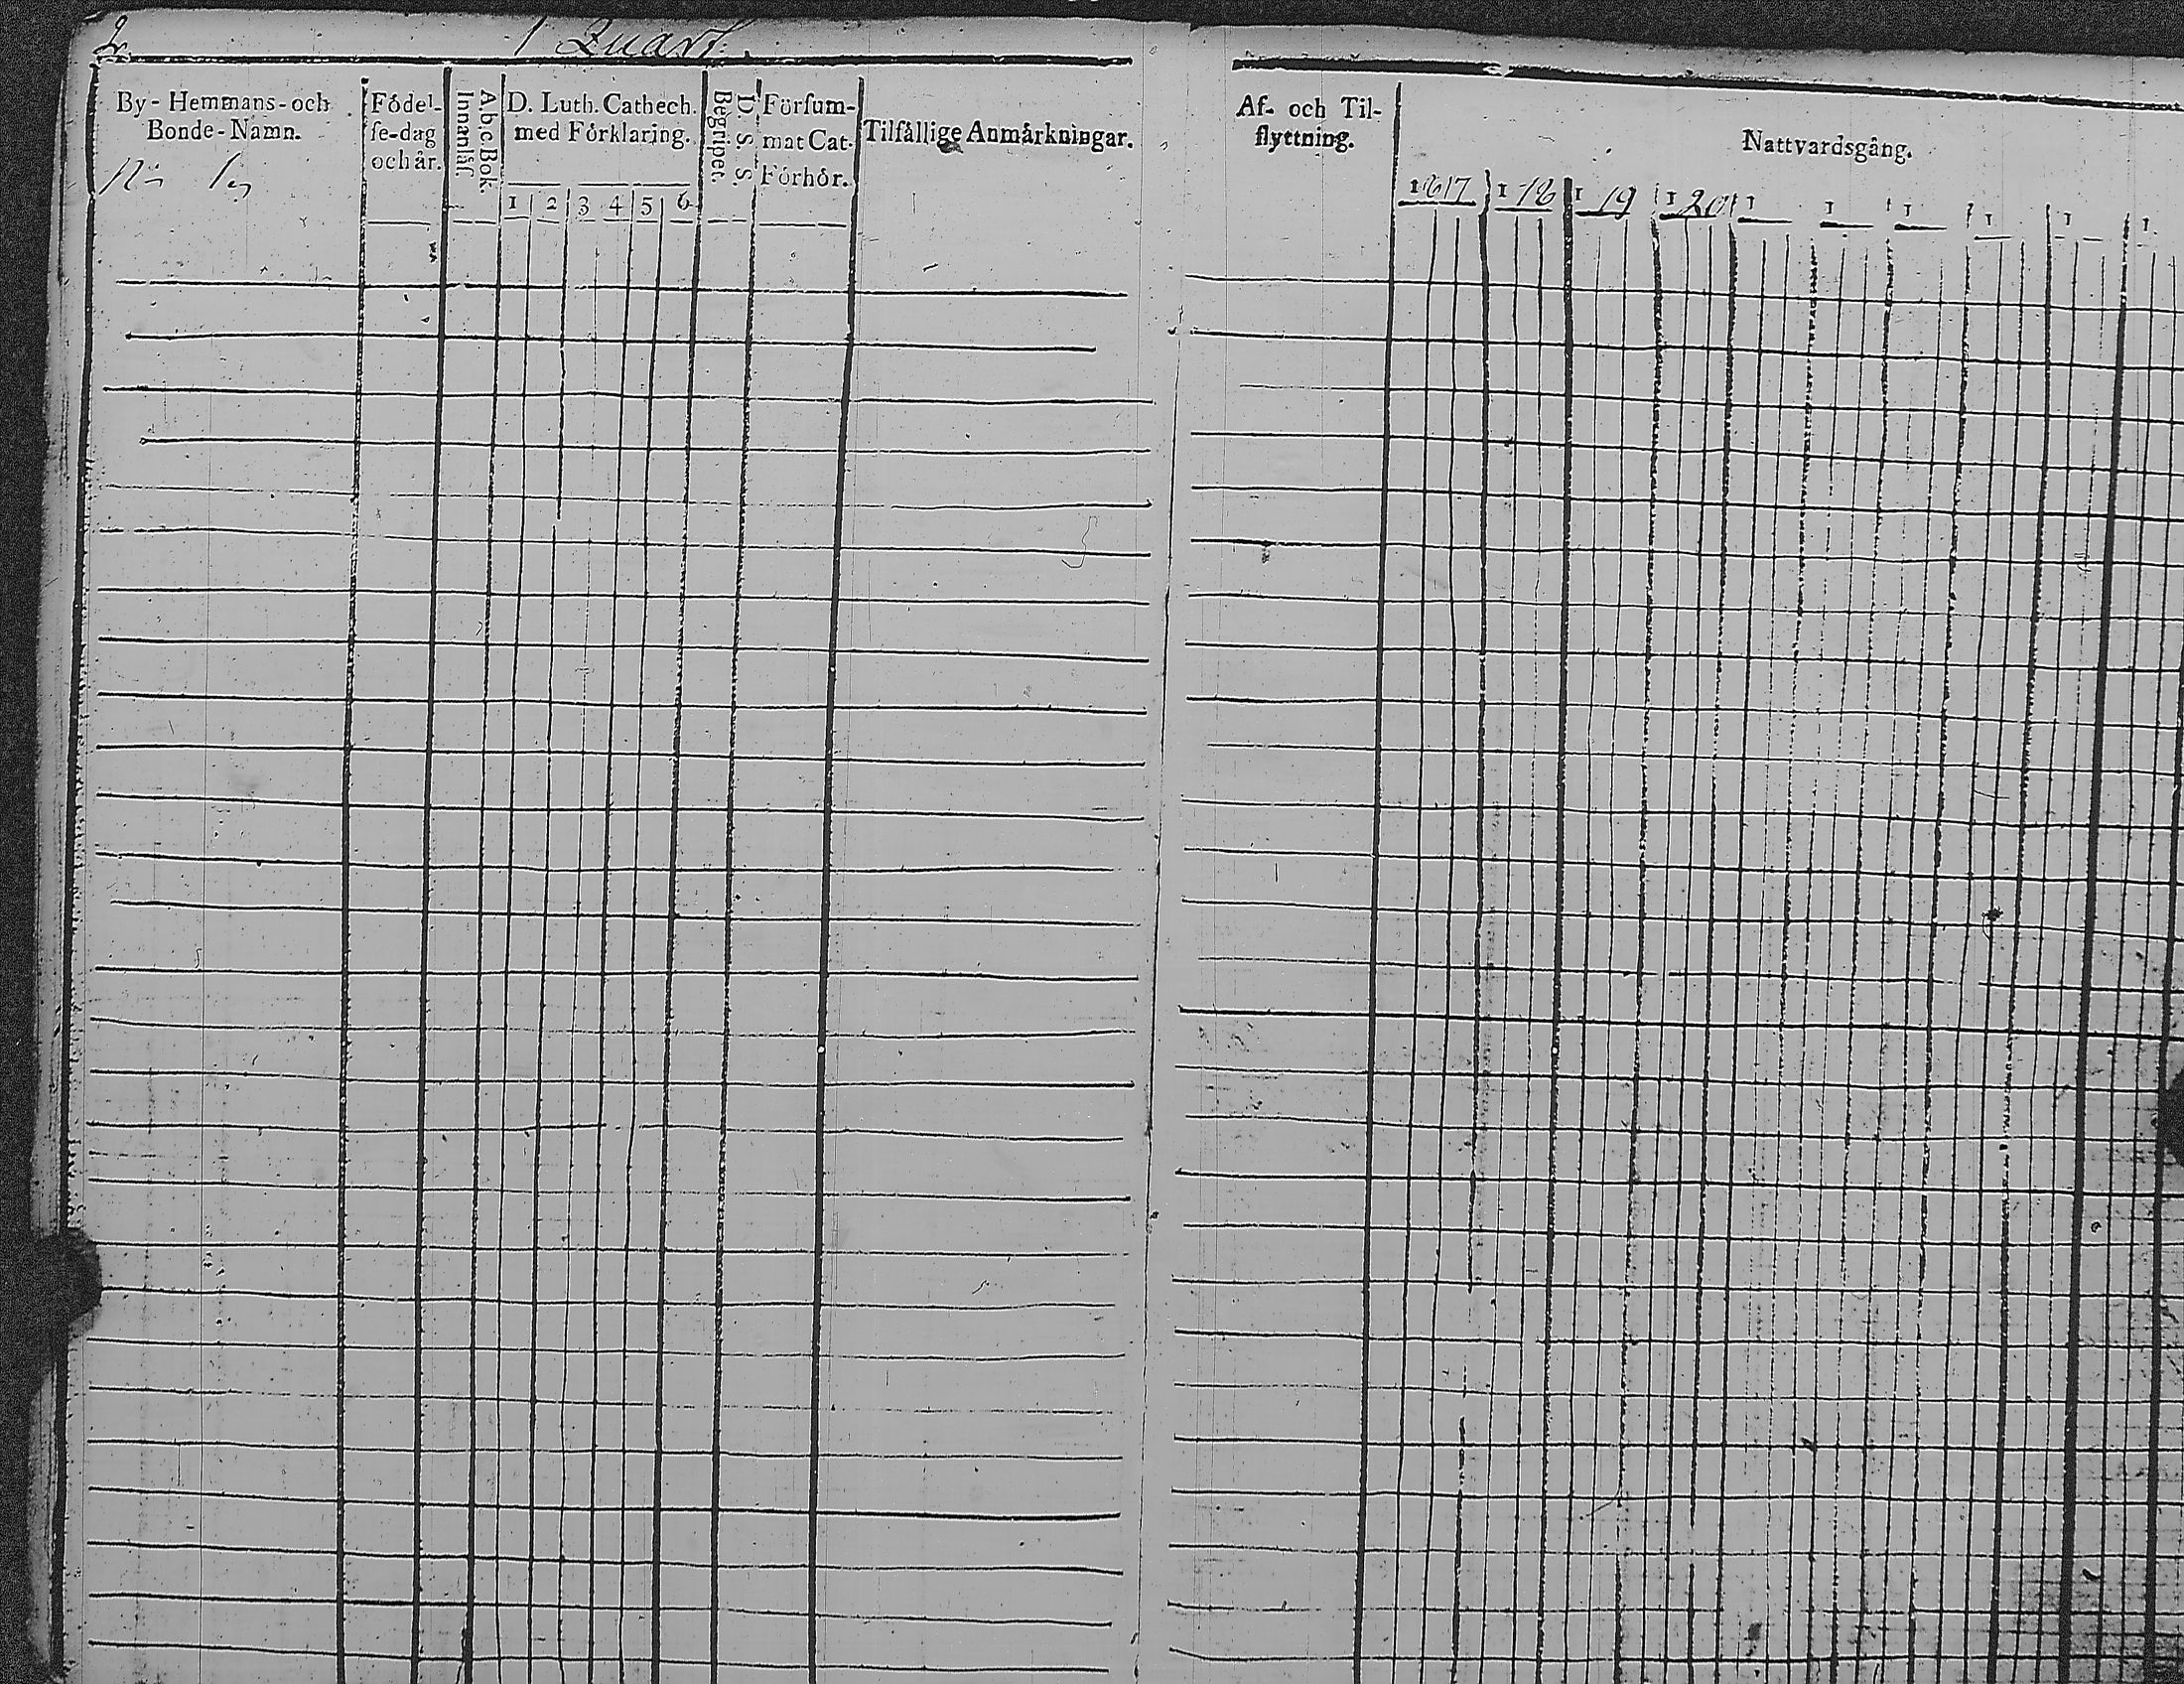 2.
1 Quart.
By- Hemmans- och
Bonde-Namn.
Födel-
se-dag
och år.
A.b.c. Bok.
Innanläs.
D. Luth. Cathech.
med Förklaring.
1 2 3 4 5 6
Begripet.
D. S. S.
Försum-
mat Cat.
Förhör.
Tilfällige Anmärkningar.
Af- och Til-
flyttning.
Nattvardsgång.
1817 1 18 1 19 1 20 1 1 1 1 1 1